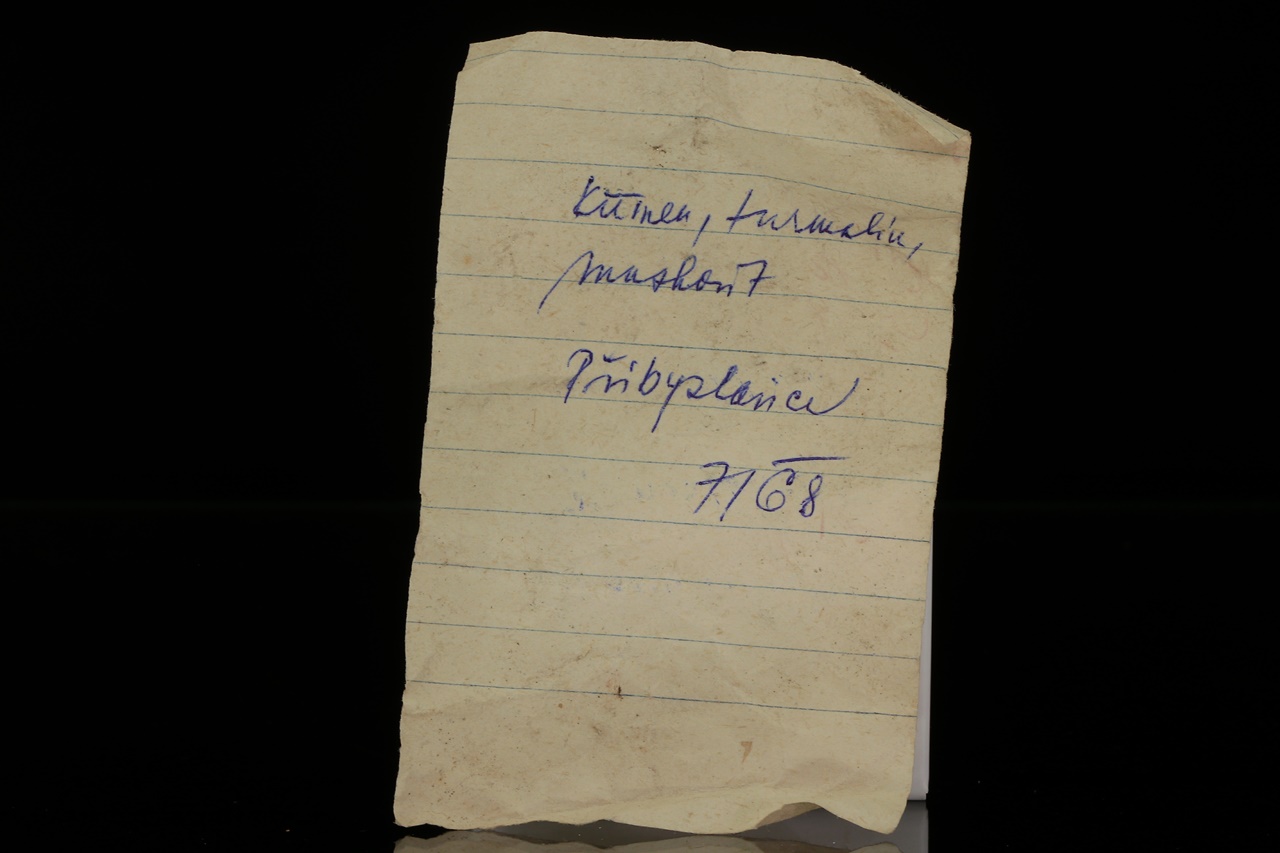 Křemen, turmalin,
muskovit
Přibyslavice
7/68